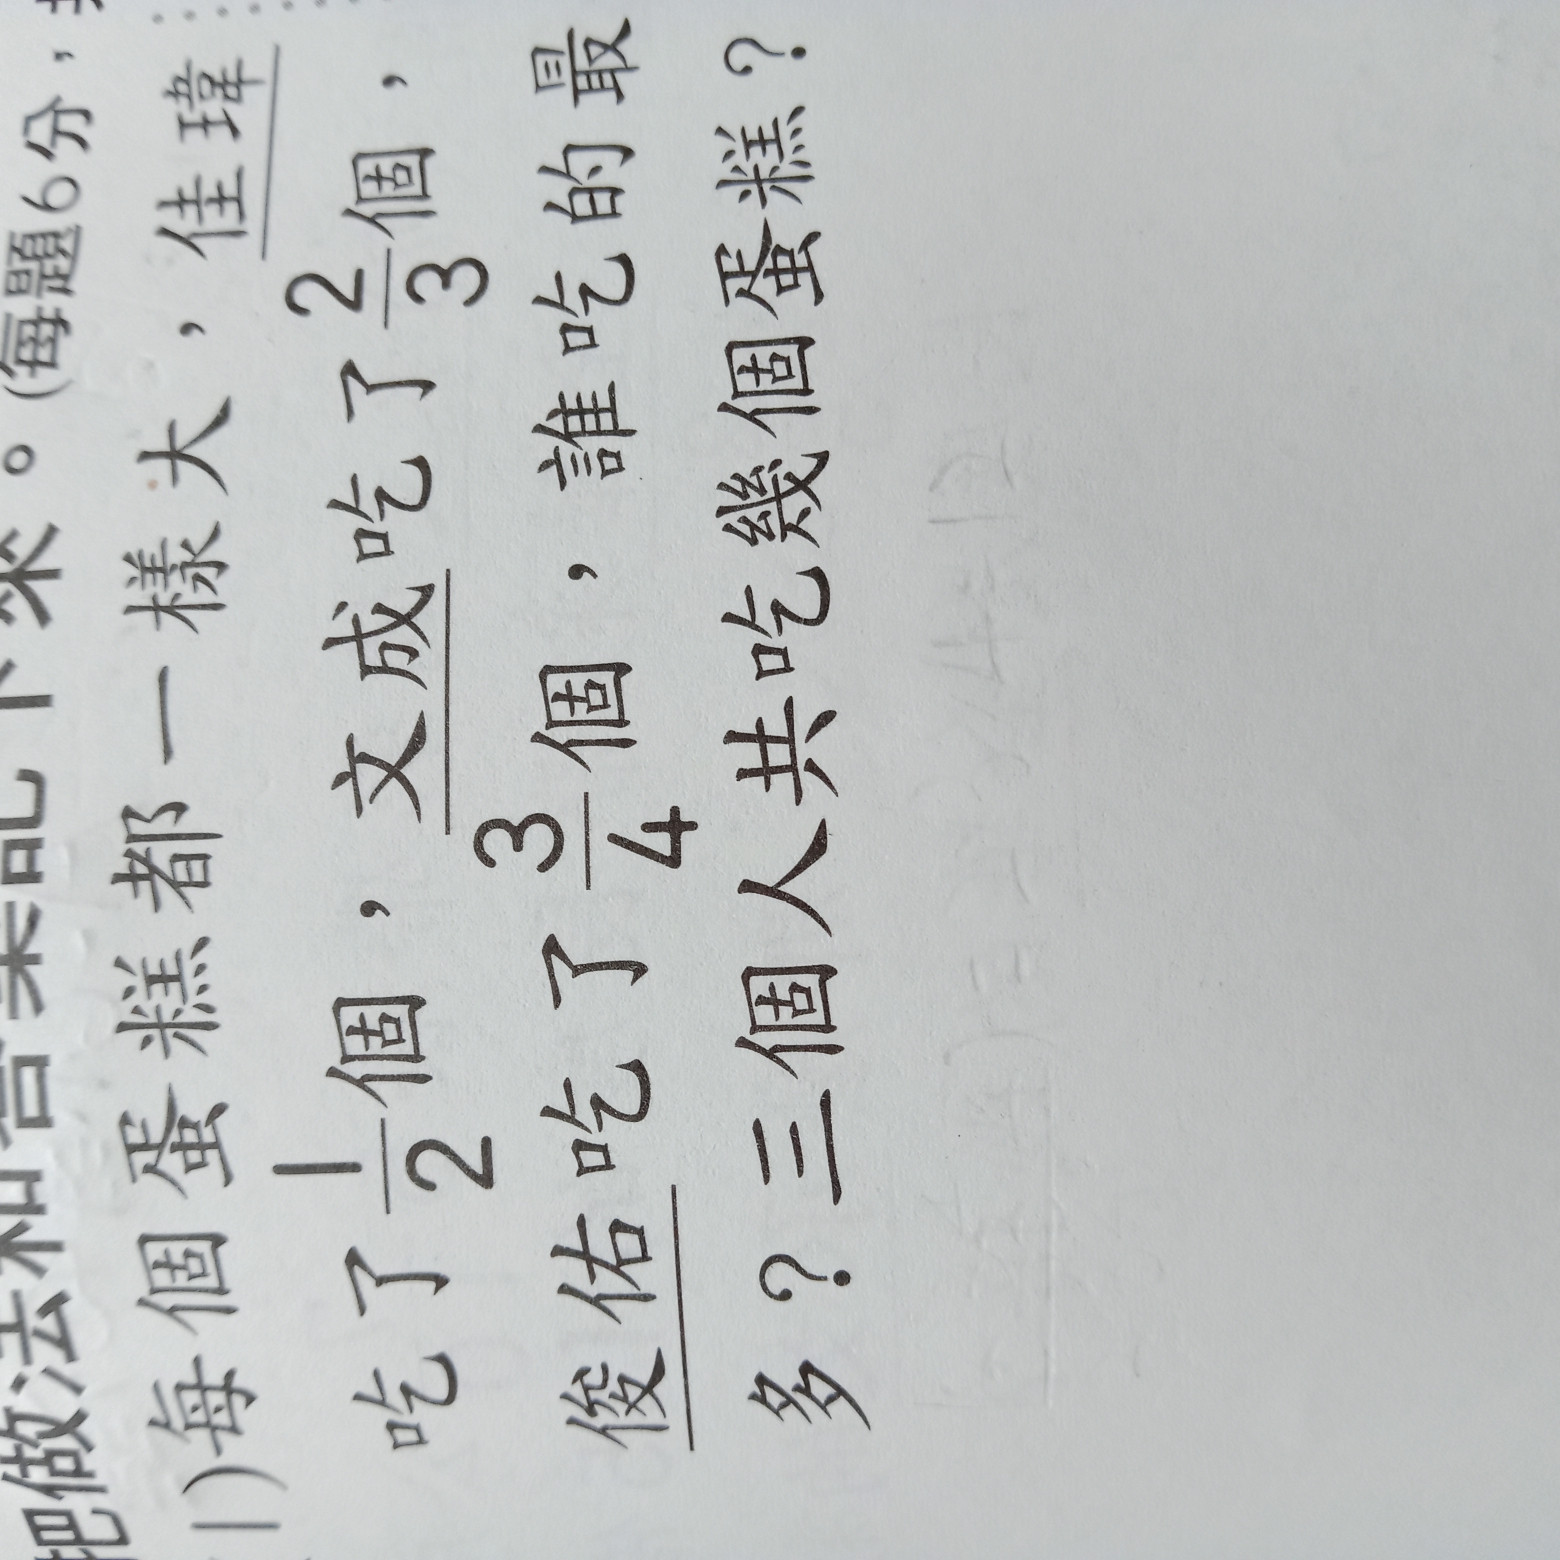 把做法和答案記下來。(每題6分，
1)每個蛋糕都一樣大，佳瑋
吃了1/2個，文成吃了2/3個，
俊佑吃了3/4個，誰吃的最
多？三個人共吃幾個蛋糕？